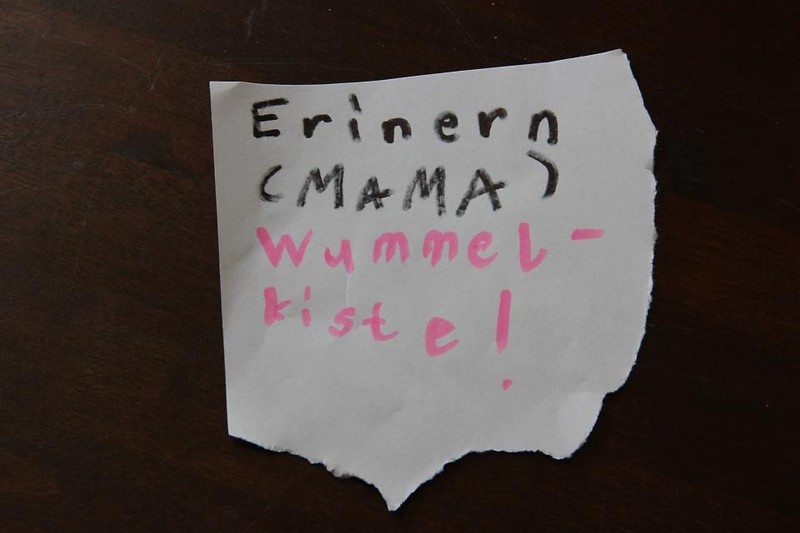 Erinern
(MAMA)
Wummel-
kiste!